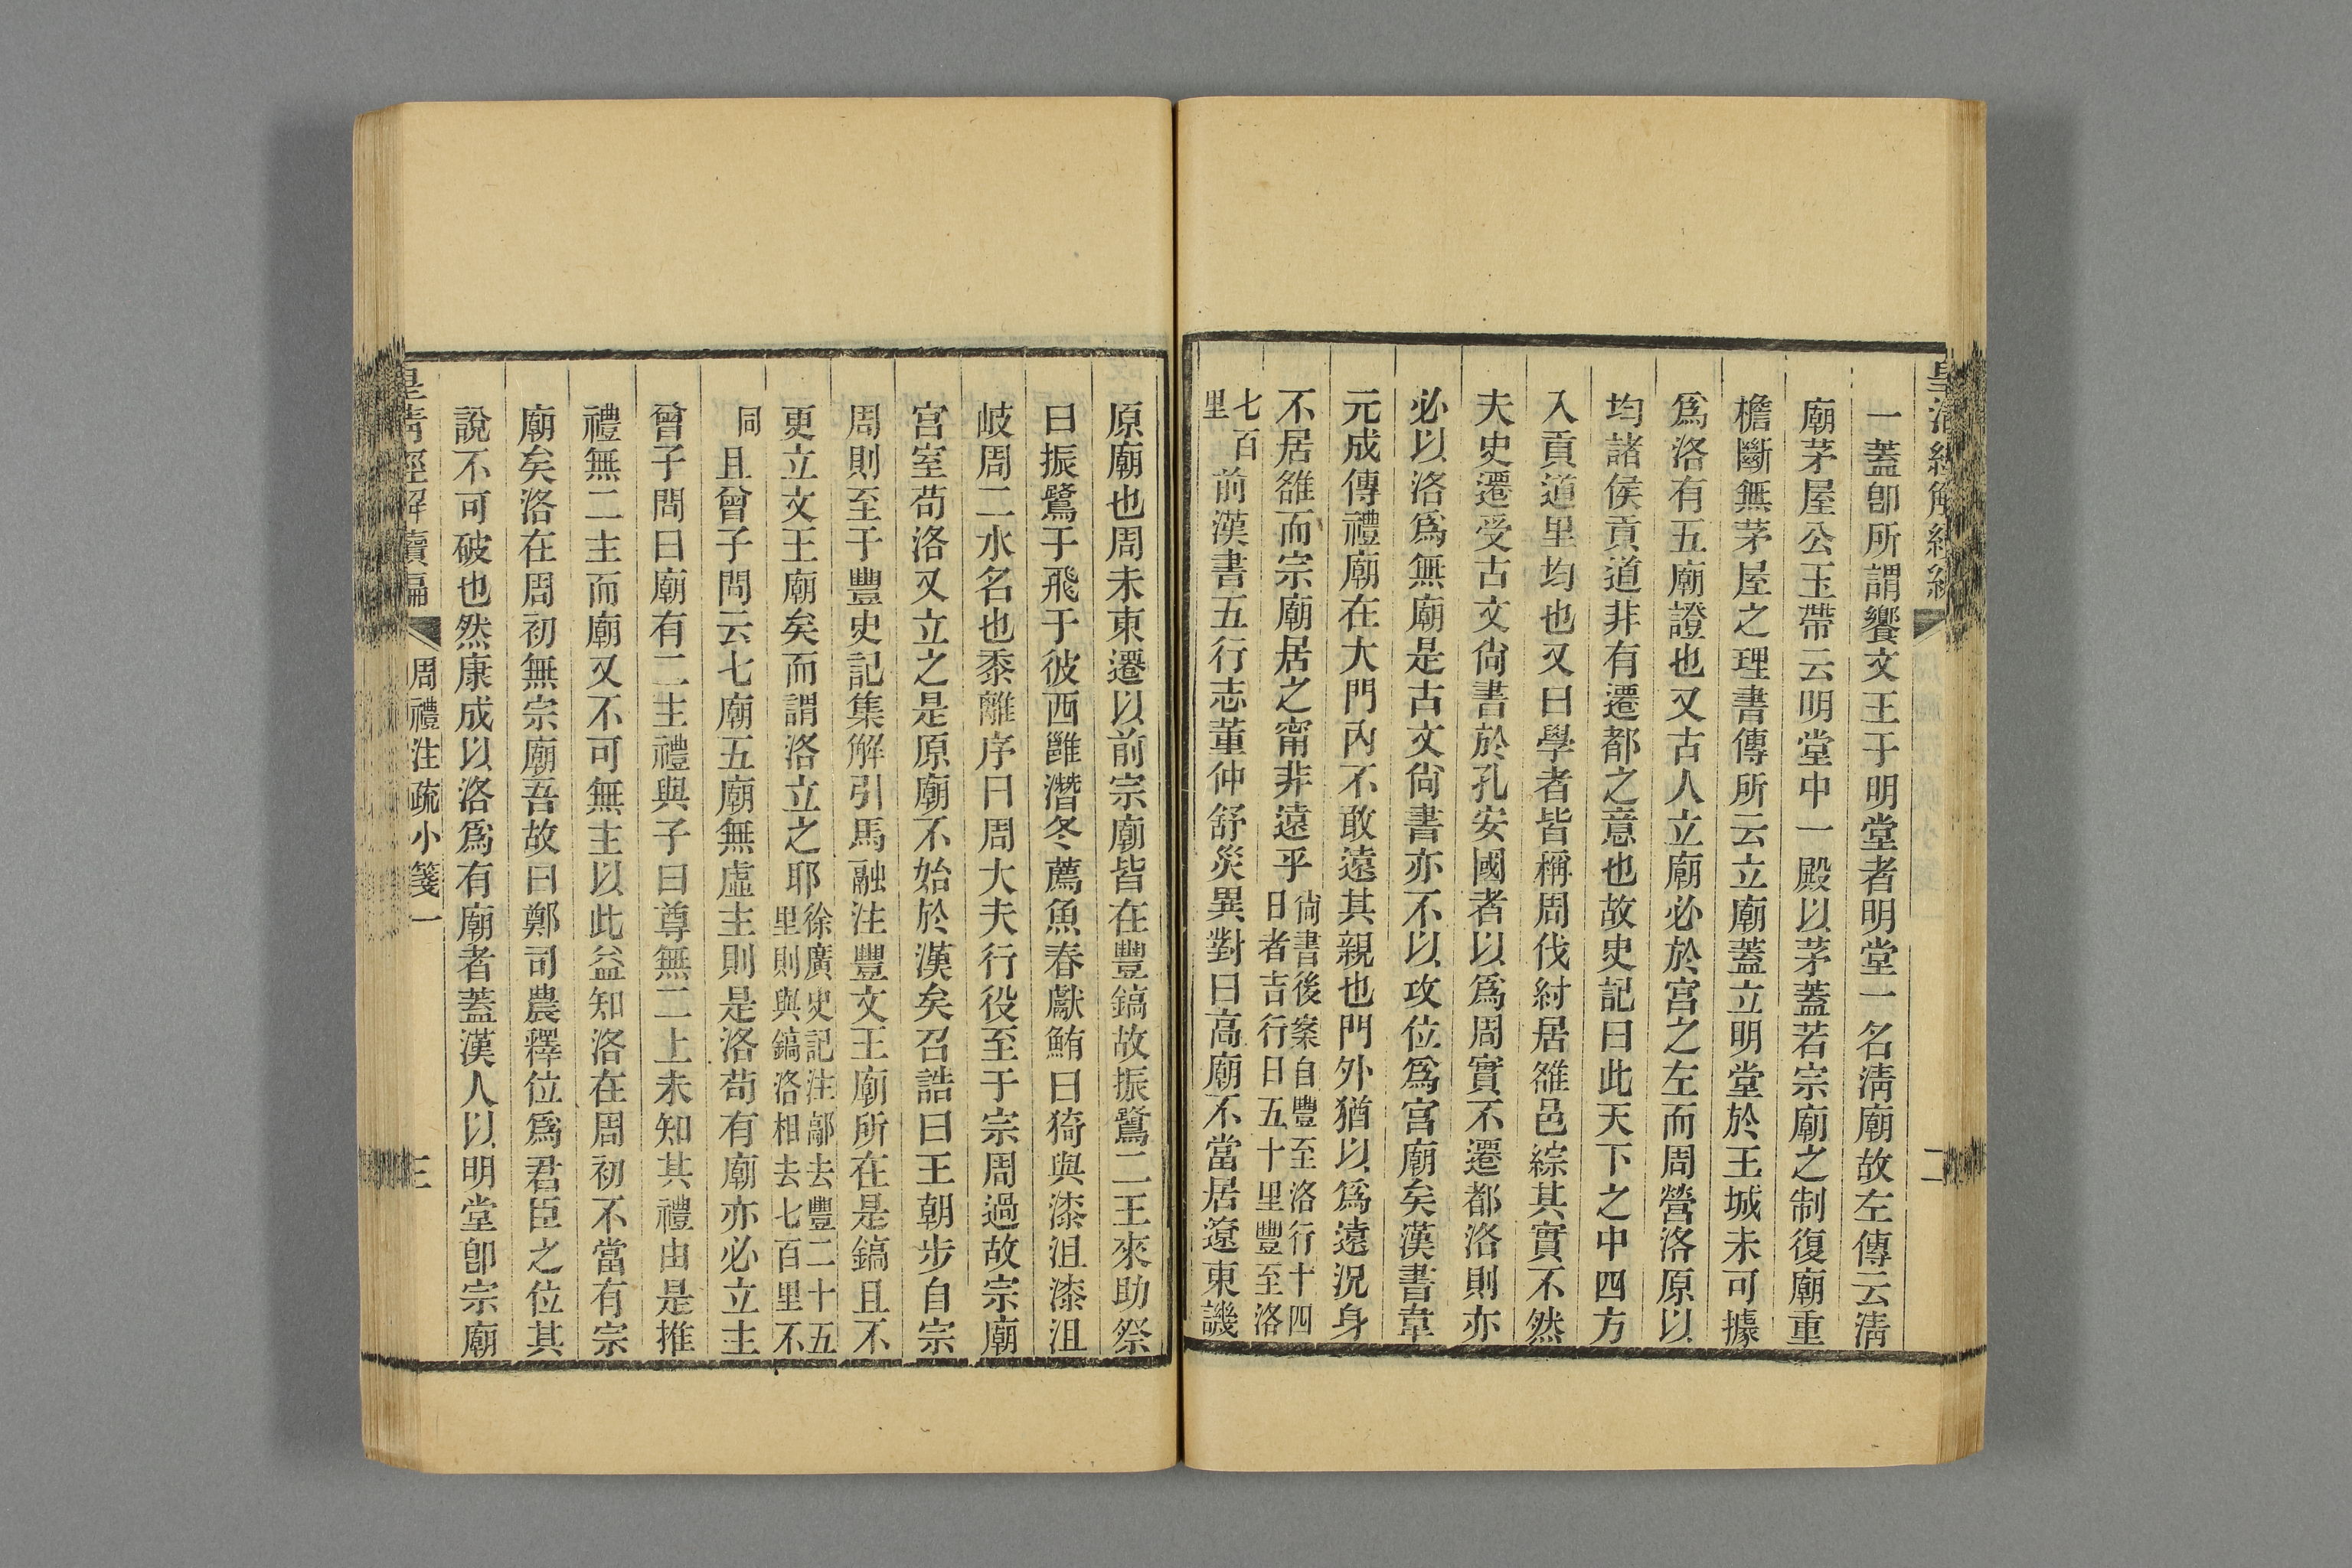 一蓋卽所謂饗文王于明堂者明堂一名淸廟故左傳云淸
廟茅屋公玉帶云明堂中一殿以茅蓋若宗廟之制復廟重
檐斷無茅屋之理書傳所云立廟蓋立明堂於王城未可據
爲洛有五廟證也又古人立廟必於宮之左而周營洛原以
均諸侯貢道非有遷都之意也故史記曰此天下之中四方
入貢道里均也又曰學者皆稱周伐紂居雒邑綜其實不然
夫史遷受古文尙書於孔安國者以爲周實不遷都洛則亦
必以洛爲無廟是古文尙書亦不以攻位爲宮廟矣漢書韋
元成傳禮廟在大門內不敢遠其親也門外猶以爲遠況身
不居雒而宗廟居之甯非遠乎尙書後案自豐至洛行十四
日者吉行日五十里豐至洛
七百
里
前漢書五行志董仲舒災異對曰高廟不當居遼東譏
二
原廟也周未東遷以前宗廟皆在豐鎬故振鷺二王來助祭
曰振鷺于飛于彼西雝潛冬薦魚春獻鮪曰猗與漆沮漆沮
岐周二水名也黍離序曰周大夫行役至于宗周過故宗廟
宮室苟洛又立之是原廟不始於漢矣召誥曰王朝步自宗
周則至于豐史記集解引馬融注豐文王廟所在是鎬且不
更立文王廟矣而謂洛立之耶徐廣史記注鄗去豐二十五
里則與鎬洛相去七百里不
同
且曾子問云七廟五廟無虛主則是洛苟有廟亦必立主
曾子問曰廟有二主禮與子曰尊無二上未知其禮由是推
禮無二主而廟又不可無主以此益知洛在周初不當有宗
廟矣洛在周初無宗廟吾故曰鄭司農釋位爲君臣之位其
說不可破也然康成以洛爲有廟者蓋漢人以明堂卽宗廟
皇淸經解續編
周禮注疏小箋一
三